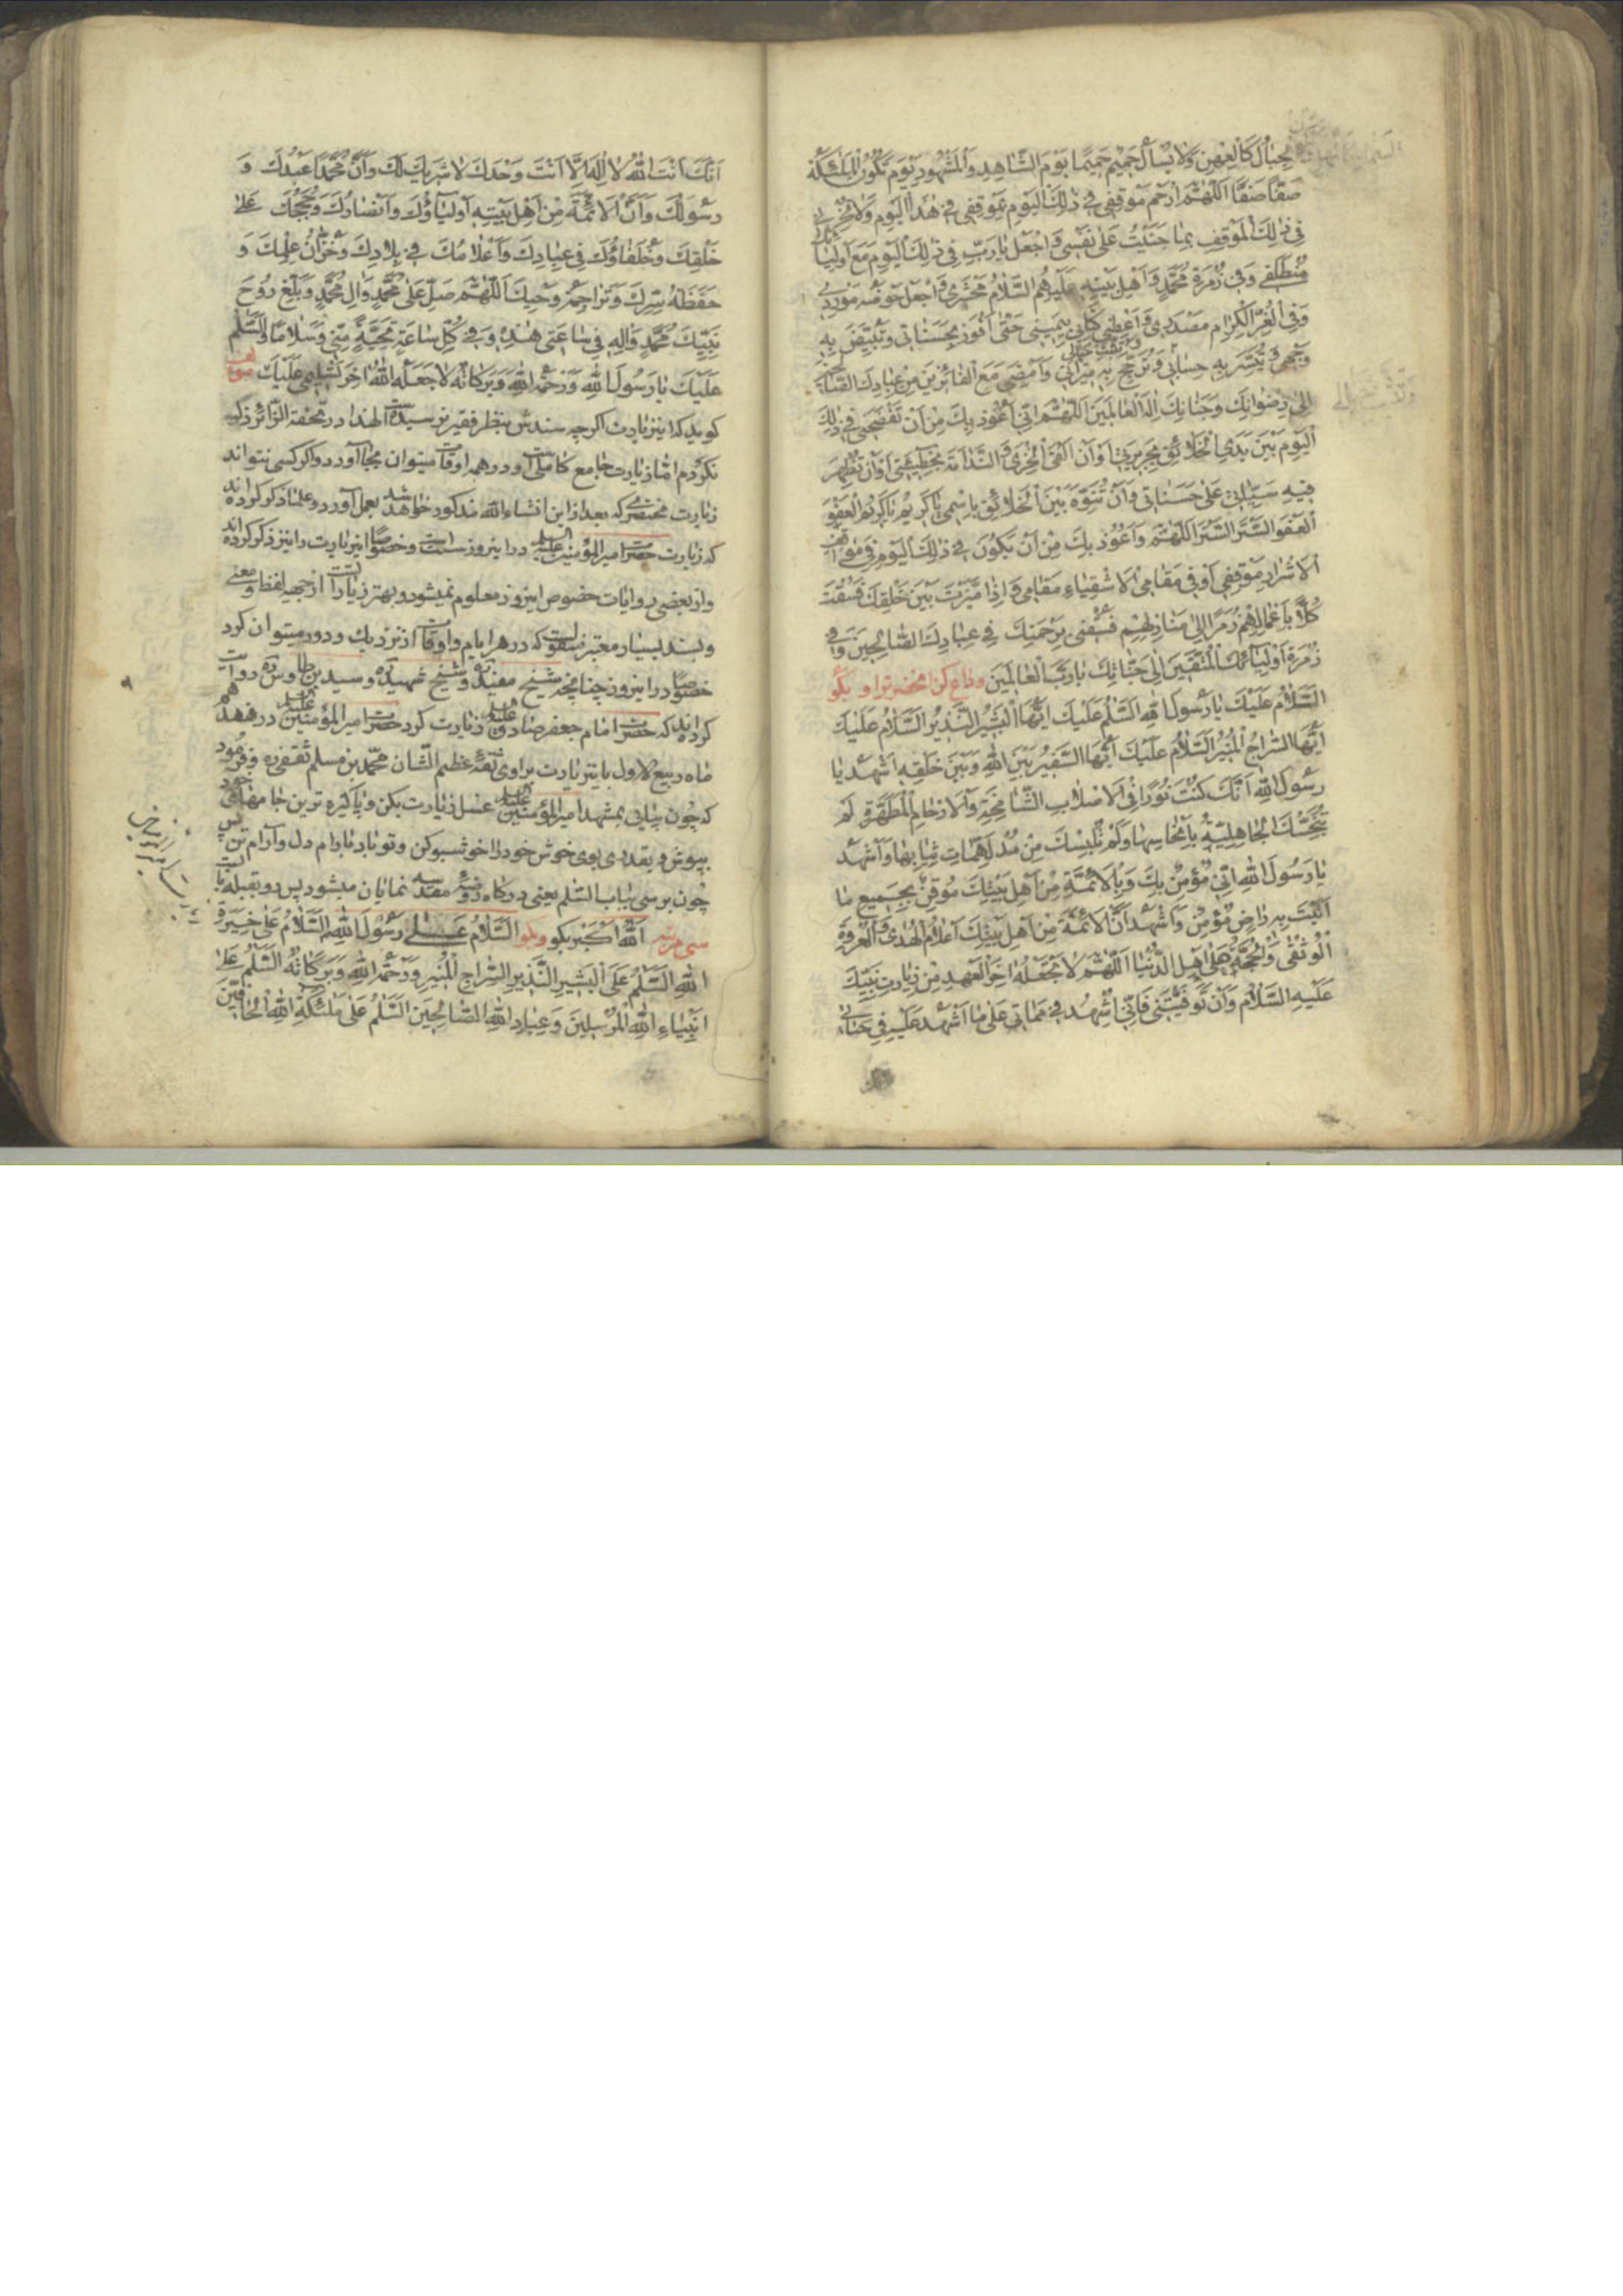 الجبال كالعهن ولا يسأل حميم حميما يوم الشاهد والمشهود يوم تكون الملئكة
صفا صفا اللهم ارحم موقفي في ذلك اليوم بموقفي في هذا اليوم ولا تخزني
في ذلك الموقف بما جنيت على نفسي واجعل يا رب في ذلك اليوم مع اوليائك
منطلقي وفي زمرة محمد واهل بيته عليهم السلام محشري واجعل حوضه موردي
وفي الغر الكرام مصدري واعطني كتابي بيميني حتى افوز بحسناتي وتبيض به
وجهي وتيسر به حسابي وترجح به ميزاني وامضي مع الفائزين من عبادك الصالحين
الى رضوانك وجنانك اله العالمين اللهم اني اعوذ بك من ان تفضحني في ذلك
اليوم بين يدي الخلائق بجريرتي او ان القى الخزي والندامة بخطيئتي او ان تظهر
فيه سيئاتي على حسناتي وان تنوه بين الخلائق باسمي يا كريم يا كريم العفو
العفو الستر الستر اللهم واعوذ بك من ان يكون في ذلك اليوم في مواقف
الاشرار موقفي او في مقامي الاشقياء مقامي واذا ميزت بين خلقك فسقت
كلا باعمالهم زمرا الى منازلهم فسقني برحمتك في عبادك الصالحين وفي
زمرة اوليائك المتقين الى جناتك يا رب العالمين وداع كن انحضرترا و بكو
السلام عليك يا رسول الله السلم عليك ايها البشير النذير السلام عليك
ايها السراج المنير السلام عليك ايها السفير بين الله وبين خلقه اشهد يا
رسول الله انك كنت نورا في الاصلاب الشامخة والارحام المطهرة لم
تنجسك الجاهلية بانجاسها ولم تلبسك من مدلهمات ثيابها واشهد
يا رسول الله اني مؤمن بك وبالائمة من اهل بيتك موقن بجميع ما
اتيت به راض مؤمن واشهد ان الائمة من اهل بيتك اعلام الهدى والعروة
الوثقى والحجة على اهل الدنيا اللهم لا تجعله اخر العهد من زيارت نبيك
عليه السلام وان توفيتني فاني اشهد في مماتي على ما اشهد عليه في حياتي
انك انت الله لا اله الا انت وحدك لا شريك لك وان محمدا عبدك و
رسولك وان الائمة من اهل بيته اولياؤك وانصارك وحججك على
خلقك وخلفاؤك في عبادك واعلامك في بلادك وخزان علمك و
حفظة سرك وتراجمة وحيك اللهم صل على محمد وال محمد وبلغ روح
نبيك محمد واله في ساعتي هذه وفي كل ساعة تحية مني وسلاما والسلم
عليك يا رسول الله ورحمة الله وبركاته لا جعله الله اخر تسليمي عليك مؤلف
كويد كه اين زيارت اكرچه سندش بنظر فقير نرسيده است لهذا در تحفة الزائر ذكر
نكردم اما زيارت جامع كاملى است و در همه اوقات ميتوان بجا آورد و اكر كسى نتواند
زيارت مختصرى كه بعد از اين انشاء الله مذكور خواهد شد بعمل آورد و علما ذكر كرده اند
كه زيارت حضرت امير المؤمنين عليه السلم در اين روز سنت است و خصوصا اين زيارت را نيز ذكر كرده اند
و از بعضى روايات خصوص اين روز معلوم نميشود و بهترين زيارات است از جهت لفظ و معنى
و بسند بسيار معتبر منقولست كه در هر ايام و اوقات از نزديك و دور ميتوان كرد
خصوصا در اين روز چنانچه شيخ مفيد ره و شيخ شهيد ره و سيد بن طاوس ره روايت
كرده اند كه حضرت امام جعفر صادق عليه السلم زيارت كرد حضرت امير المؤمنين عليه السلم در هفدهم
ماه ربيع الاول باين زيارت براوى ثقه عظيم الشان محمد بن مسلم ثقفى ره و فرمود
كه چون بيائى بمشهد امير المؤمنين عليه السلم غسل زيارت بكن و پاكيزه ترين جامهاى خود
بپوش و بقدرى بوى خوش خود را خوشبو كن و تو نابرما بارام دل و آرام تن پس
چون برسى بباب السلم يعنى دركاه روضه مقدسه نمايان ميشود پس رو بقبله بايست
سى مرتبه الله اكبر بكو و بكو السلام على رسول الله السلام على خيرة
الله السلم على البشير النذير السراج المنير ورحمة الله وبركاته السلم على
انبياء الله المرسلين وعباد الله الصالحين السلم على ملئكة الله الحافين